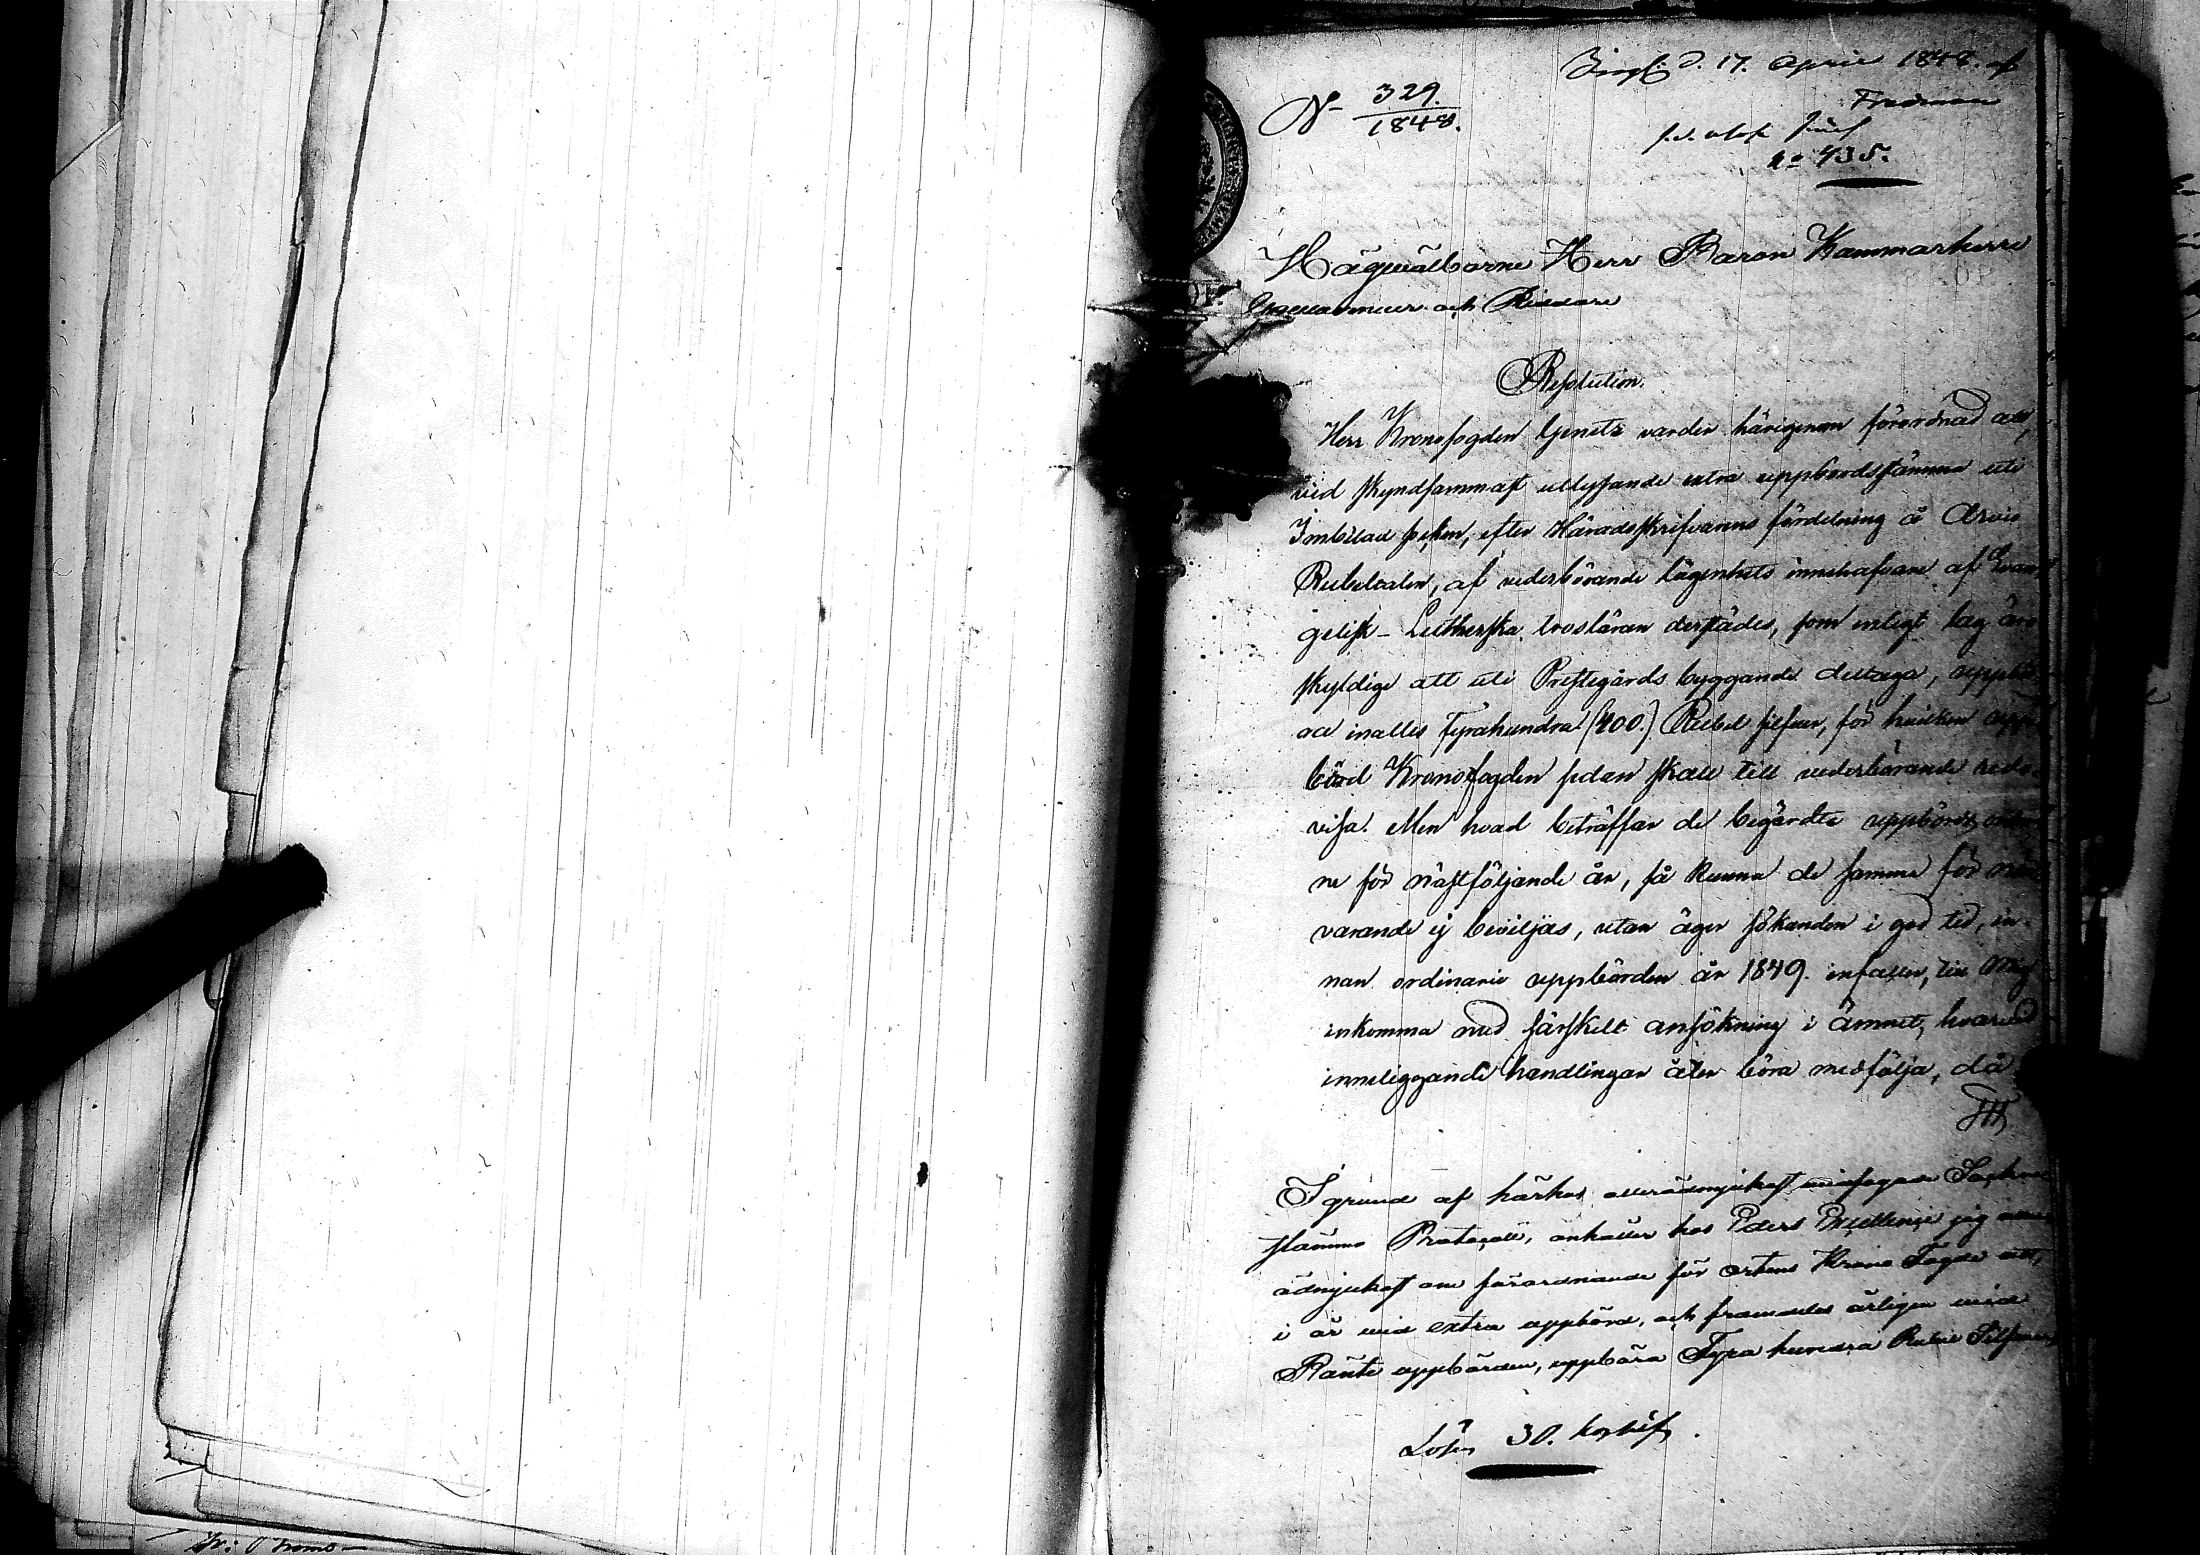 Ingf: d. 17. April 1848. af
Fredman
№ 329.
1848.
no 435.
Högvälborne Herr Baron Kammarherre
Gouverneur och Riddare
Resolution.
Herr Kronofogden Genetz varder härigenom förordnad att,
vid skyndsammast utlysande extra uppbördsstämma uti
Imbilax socken, efter Häradsskrifvarens fördelning å Arvio
Rubeltalen, af vederbörande lägenhets innehafvare af Evan-
gelisk-Lutherska trosläran derstädes, som enligt lag äro
skyldige att uti Prestegårds byggande deltaga, uppbä-
ra inalles Fyrahundra (400.) Rubel silfver, för hvilken upp-
börd Kronofogden sedan skall till vederbörande redo-
visa. Men hvad beträffar de begärdte uppbörds
ne för nästföljande år, så kunna de samma för när-
varande ej beviljas, utan äger sökanden i god tid, in-
nan ordinarie uppbörden år 1849. infaller, till Mig
inkomma med särskilt ansökning i ämnet, hvarvid
inneliggande handlingar åter böra medfölja, då
I grund af härhos allerödmjukast vidfogade Sockne
stämmo Protocoll, anhåller hos Eders Excellence jag aller-
ödmjukast om förordnande för ortens Krono Fogde att,
i år vid extra uppbörd, och framdeles årligen vid
Ränte uppbörden, uppbära Fyra hundra Rubel Silfver
Lösen 30. kop silf.